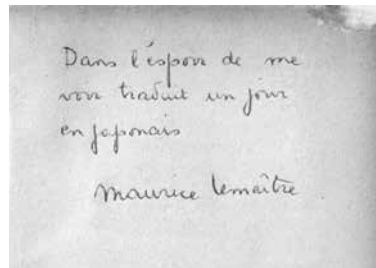 Dans l'éspoir de me
voir traduit un jour
en japonais
maurice lemaître